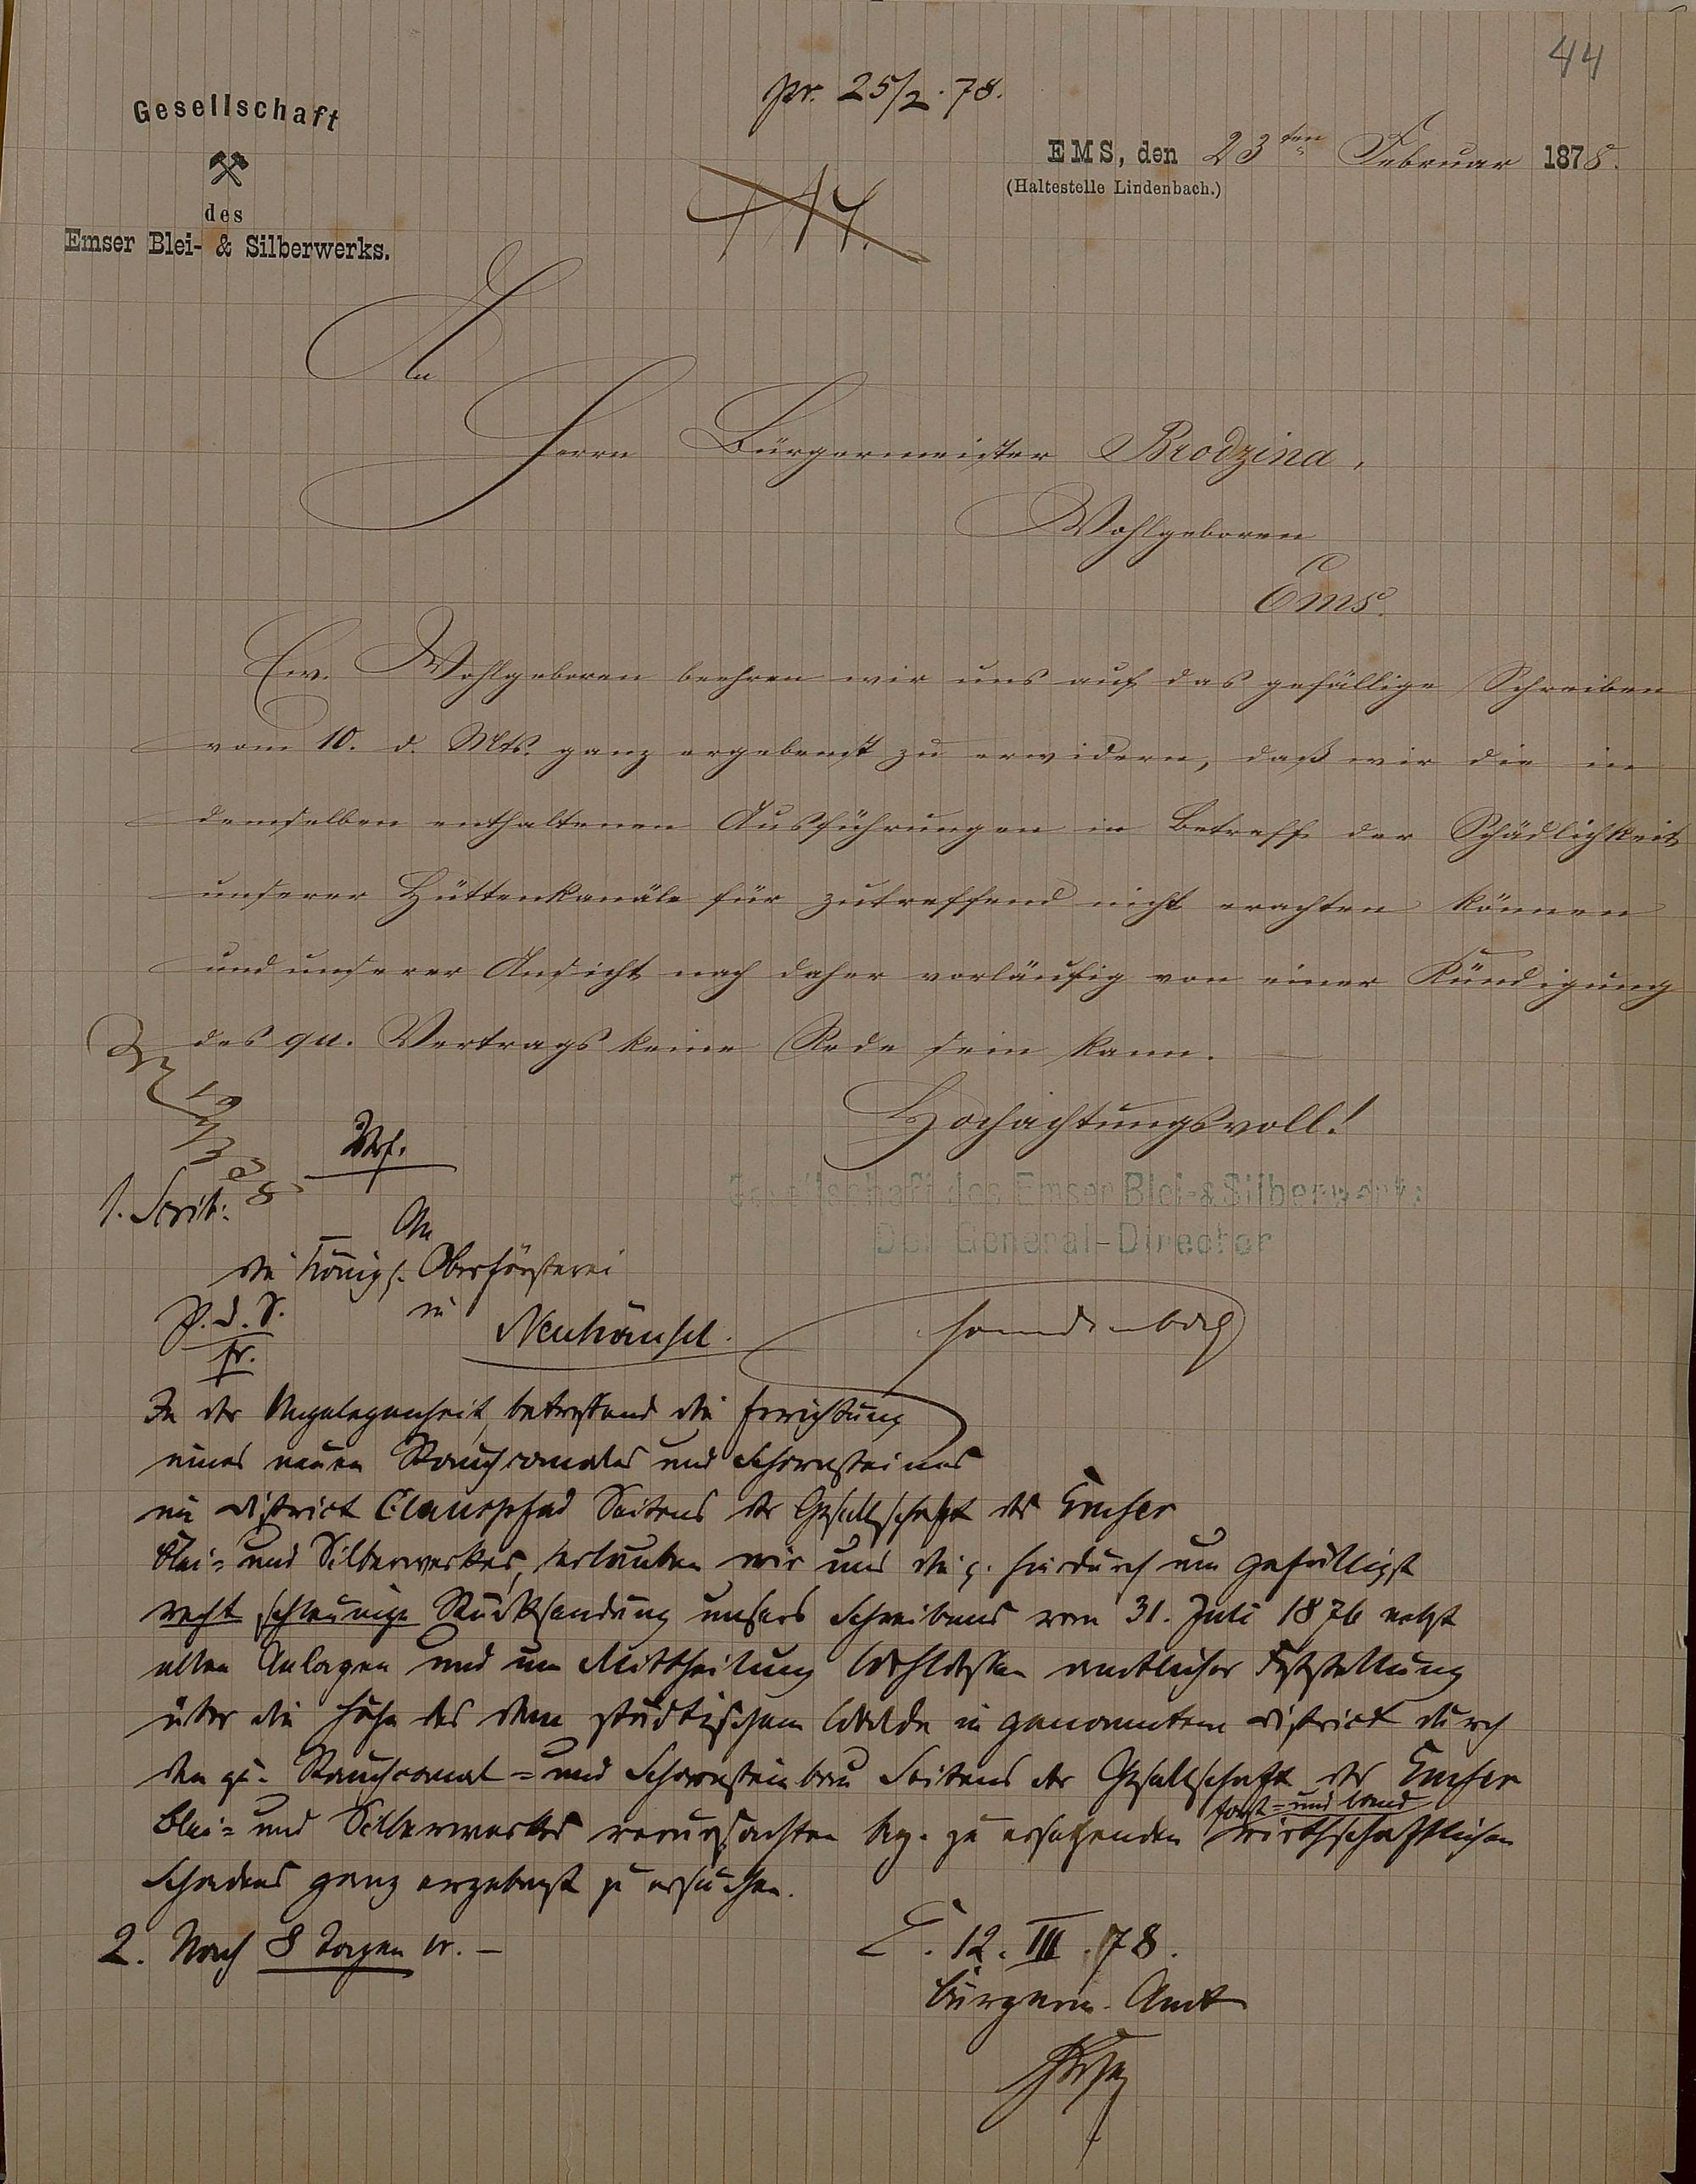 44
Gesellschaft
des
Emser Blei- & Silberwerks.
pr. 25/2. 78.
EMS, den 23ten Februar 1878.
(Haltestelle Lindenbach.)
An
Herrn Bürgermeister Brodzina,
Wohlgeboren
Ems.
Ew. Wohlgeboren beehren wir uns auf das gefällige Schreiben
vom 10. d. Mts. ganz ergebenst zu erwidern, daß wir die in
demselben enthaltenen Ausführungen in Betreff der Schädlichkeit
unserer Hüttenkanäle für zutreffend nicht erachten können
und unserer Ansicht nach daher vorläufig von einer Kündigung
des qu. Vertrags keine Rede sein kann.
Hochachtungsvoll!
Gesellschaft des Emser Blei- & Silberwerks
Der General-Director
Vrf.
1. Scrib:
An
die Königl. Oberförsterei
in
Neuhäusel.
p. d. S.
fr.
In der Angelegenheit, betreffend die Errichtung
eines neuen Rauchcanales und Schornsteines
im District Clauspfad Seitens der Gesellschaft des Emser
Blei- und Silberwerkes, erlauben wir uns die p. hierdurch um gefälligst
recht schleunige Rücksendung unsers Schreibens vom 31. Juli 1876 nebst
allen Anlagen und um Mittheilung wohldessen amtlicher Feststellung
über die Höhe des dem städtischen Walde in genanntem District durch
den qu. Rauchcanal- und Schornsteinbau Seitens der Gesellschaft des Emser
Blei- und Silberwerkes verursachten bez. zu ersetzenden forst- und landwirthschaftlichen
Schadens ganz ergebenst zu ersuchen.
2. Nach 8 Tagen vr. –
E. 12. III. 78.
Bürgerm. Amt